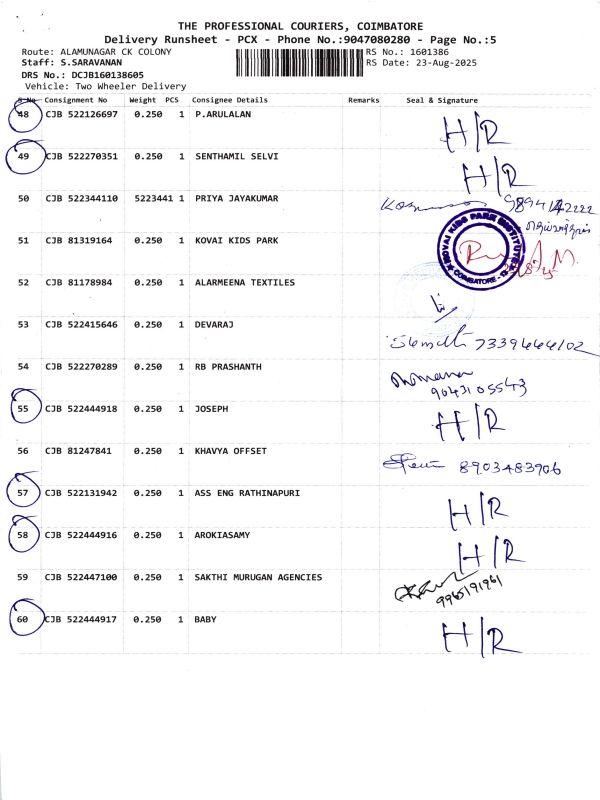 THE PROFESSIONAL COURIERS, COIMBATORE
Delivery Runsheet - PCX - Phone No.:9047080280 - Page No.:5
Route: ALAMUNAGAR CK COLONY RS No.: 1601386
Staff: S.SARAVANAN RS Date: 23-Aug-2025
DRS No.: DCJB160138605
Vehicle: Two Wheeler Delivery
S.No Consignment No Weight PCS Consignee Details Remarks Seal & Signature
48 CJB 522126697 0.250 1 P.ARULALAN H/R
49 CJB 522270351 0.250 1 SENTHAMIL SELVI H/R
50 CJB 522344110 5223441 1 PRIYA JAYAKUMAR
51 CJB 81319164 0.250 1 KOVAI KIDS PARK KOVAI KIDS PARK INSTITUTE COIMBATORE
52 CJB 81178984 0.250 1 ALARMEENA TEXTILES
53 CJB 522415646 0.250 1 DEVARAJ 7339444102
54 CJB 522270289 0.250 1 RB PRASHANTH
9043105543
55 CJB 522444918 0.250 1 JOSEPH H/R
56 CJB 81247841 0.250 1 KHAVYA OFFSET 8903483906
57 CJB 522131942 0.250 1 ASS ENG RATHINAPURI H/R
58 CJB 522444916 0.250 1 AROKIASAMY H/R
59 CJB 522447100 0.250 1 SAKTHI MURUGAN AGENCIES
60 CJB 522444917 0.250 1 BABY H/R